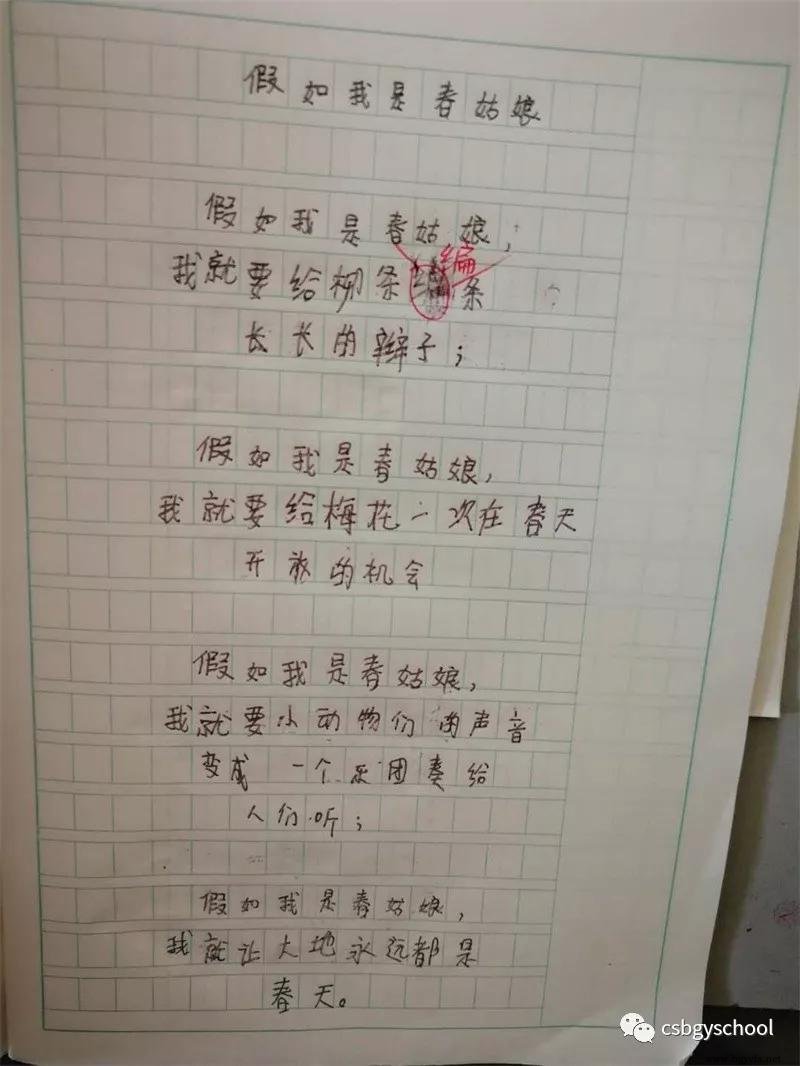 假如我是春姑娘
假如我是春姑娘,
编
我就要给柳条编条
长长的辫子;
假如我是春姑娘,
我就要给梅花一次在春天
开放的机会
假如我是春姑娘,
我就要小动物们的声音
变成一个乐团奏给
人们听;
假如我是春姑娘,
我就让大地永远都是
春天。
csbgyschool